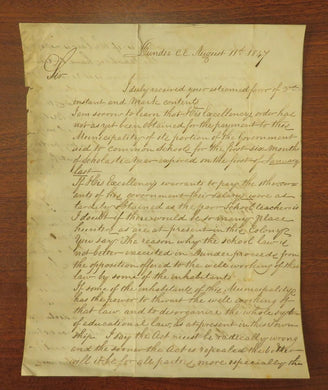 Dundee C.E. August 11th 1847
Sir
I duly received your esteemed favor of 5th
instant and mark contents
I am sorrow to learn that His Excellencys order has
not as yet been obtained for the payment to this
Municipality of its portion of the Government
aid to common Schools for the first six months
of Scholastic year expired on the first of January
last
If His Excellencys warrants to pay the other serv-
ants of the government their Salary were as
tardily obtained as the poor School teachers is
I doubt if there would be so many place
hunters as are at present in this Colony
You say the reason why the school law is
not better executed in Dundee proceeds from
the opposition offered to the well working of this
law by some of the inhabitants
If some of the inhabitants of this Municipality
has the power to thwart the well working of
that law and to disorganize the whole system
of educational law, as at present in this Town
ship I say the Act must be radically wrong
and the sooner the Act is repealed the better
will it be for all parties more especially the